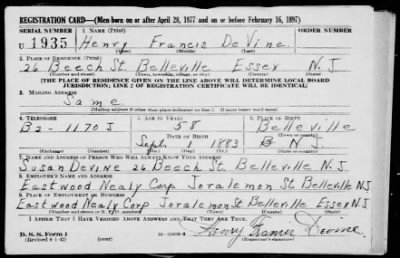 REGISTRATION CARD—(Men born on or after April 28, 1877 and on or before February 16, 1897)
SERIAL NUMBER 1. NAME (Print) ORDER NUMBER
U 1935 Henry Francis DeVine
(First) (Middle) (Last)
2. PLACE OF RESIDENCE (Print)
26 Beech St. Belleville Essex N.J.
(Number and street) (Town, township, village, or city) (County) (State)
[THE PLACE OF RESIDENCE GIVEN ON THE LINE ABOVE WILL DETERMINE LOCAL BOARD
JURISDICTION; LINE 2 OF REGISTRATION CERTIFICATE WILL BE IDENTICAL]
3. MAILING ADDRESS
Same
4. TELEPHONE 5. AGE IN YEARS 6. PLACE OF BIRTH
B2-1170J 58 Belleville
DATE OF BIRTH
Sept. 1 1883 N.J.
7. NAME AND ADDRESS OF PERSON WHO WILL ALWAYS KNOW YOUR ADDRESS
Susan Devine 26 Beech St. Belleville N.J.
8. EMPLOYER'S NAME AND ADDRESS
Eastwood Nealy Corp Joralemon St. Belleville NJ
9. PLACE OF EMPLOYMENT OR BUSINESS
Eastwood Nealy Corp Joralemon St Belleville Essex NJ
(Number and street or R. F. D. number) (Town) (County) (State)
I AFFIRM THAT I HAVE VERIFIED ABOVE ANSWERS AND THAT THEY ARE TRUE.
D. S. S. Form 1 Henry Francis Devine
(Revised 4-1-42) (over)